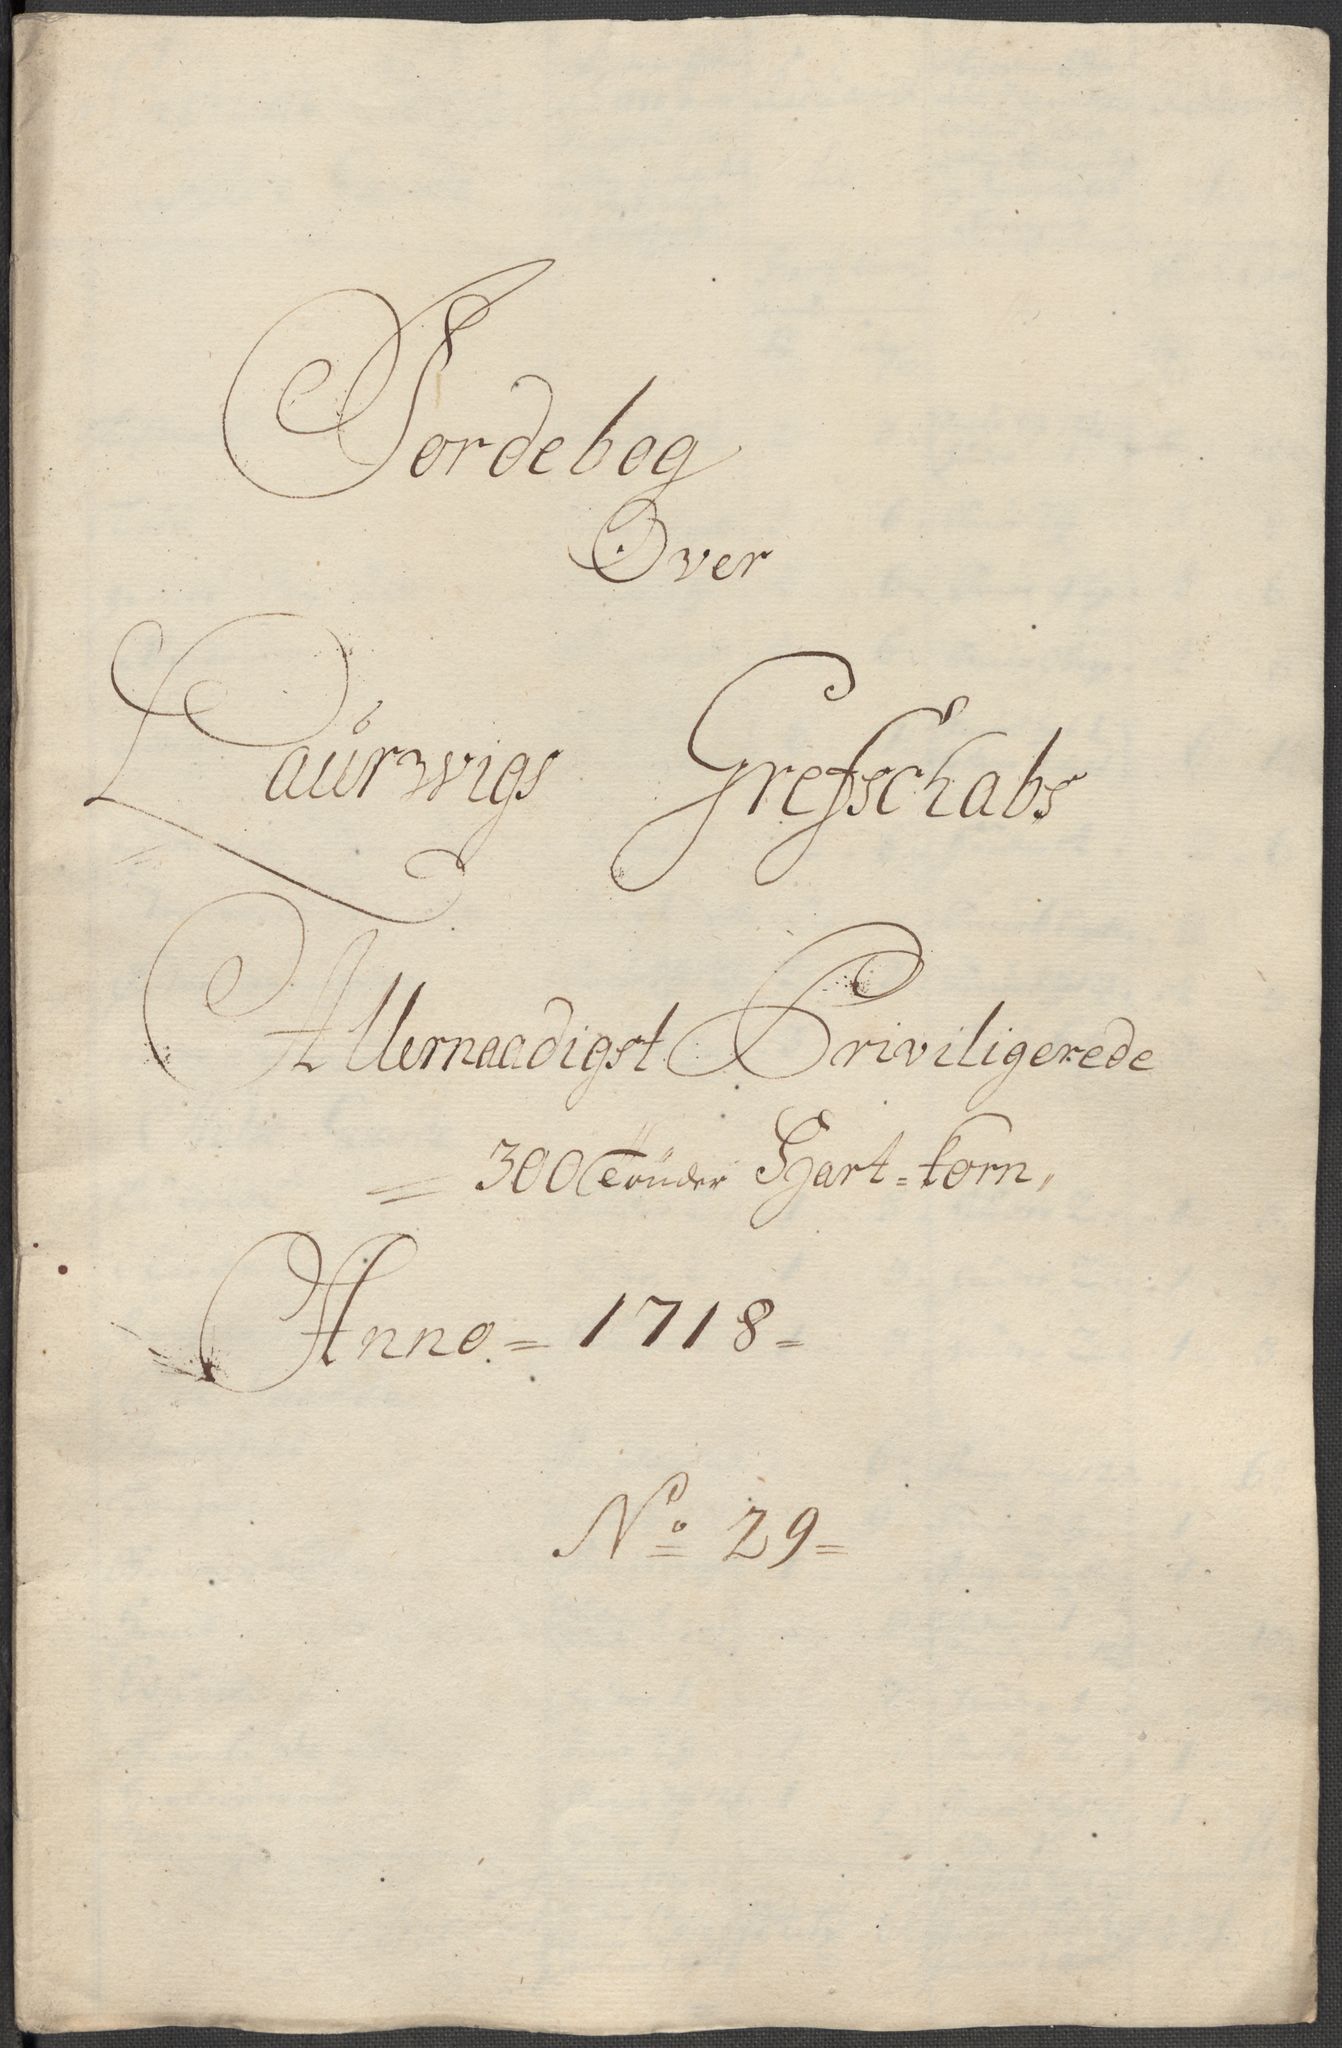 Jordebog
Over
Laurwigs Grefschabs
Allernaadigst Priviligerede
= 300 Tønder Hart=korn,
Anno = 1718 =
No. 29 =